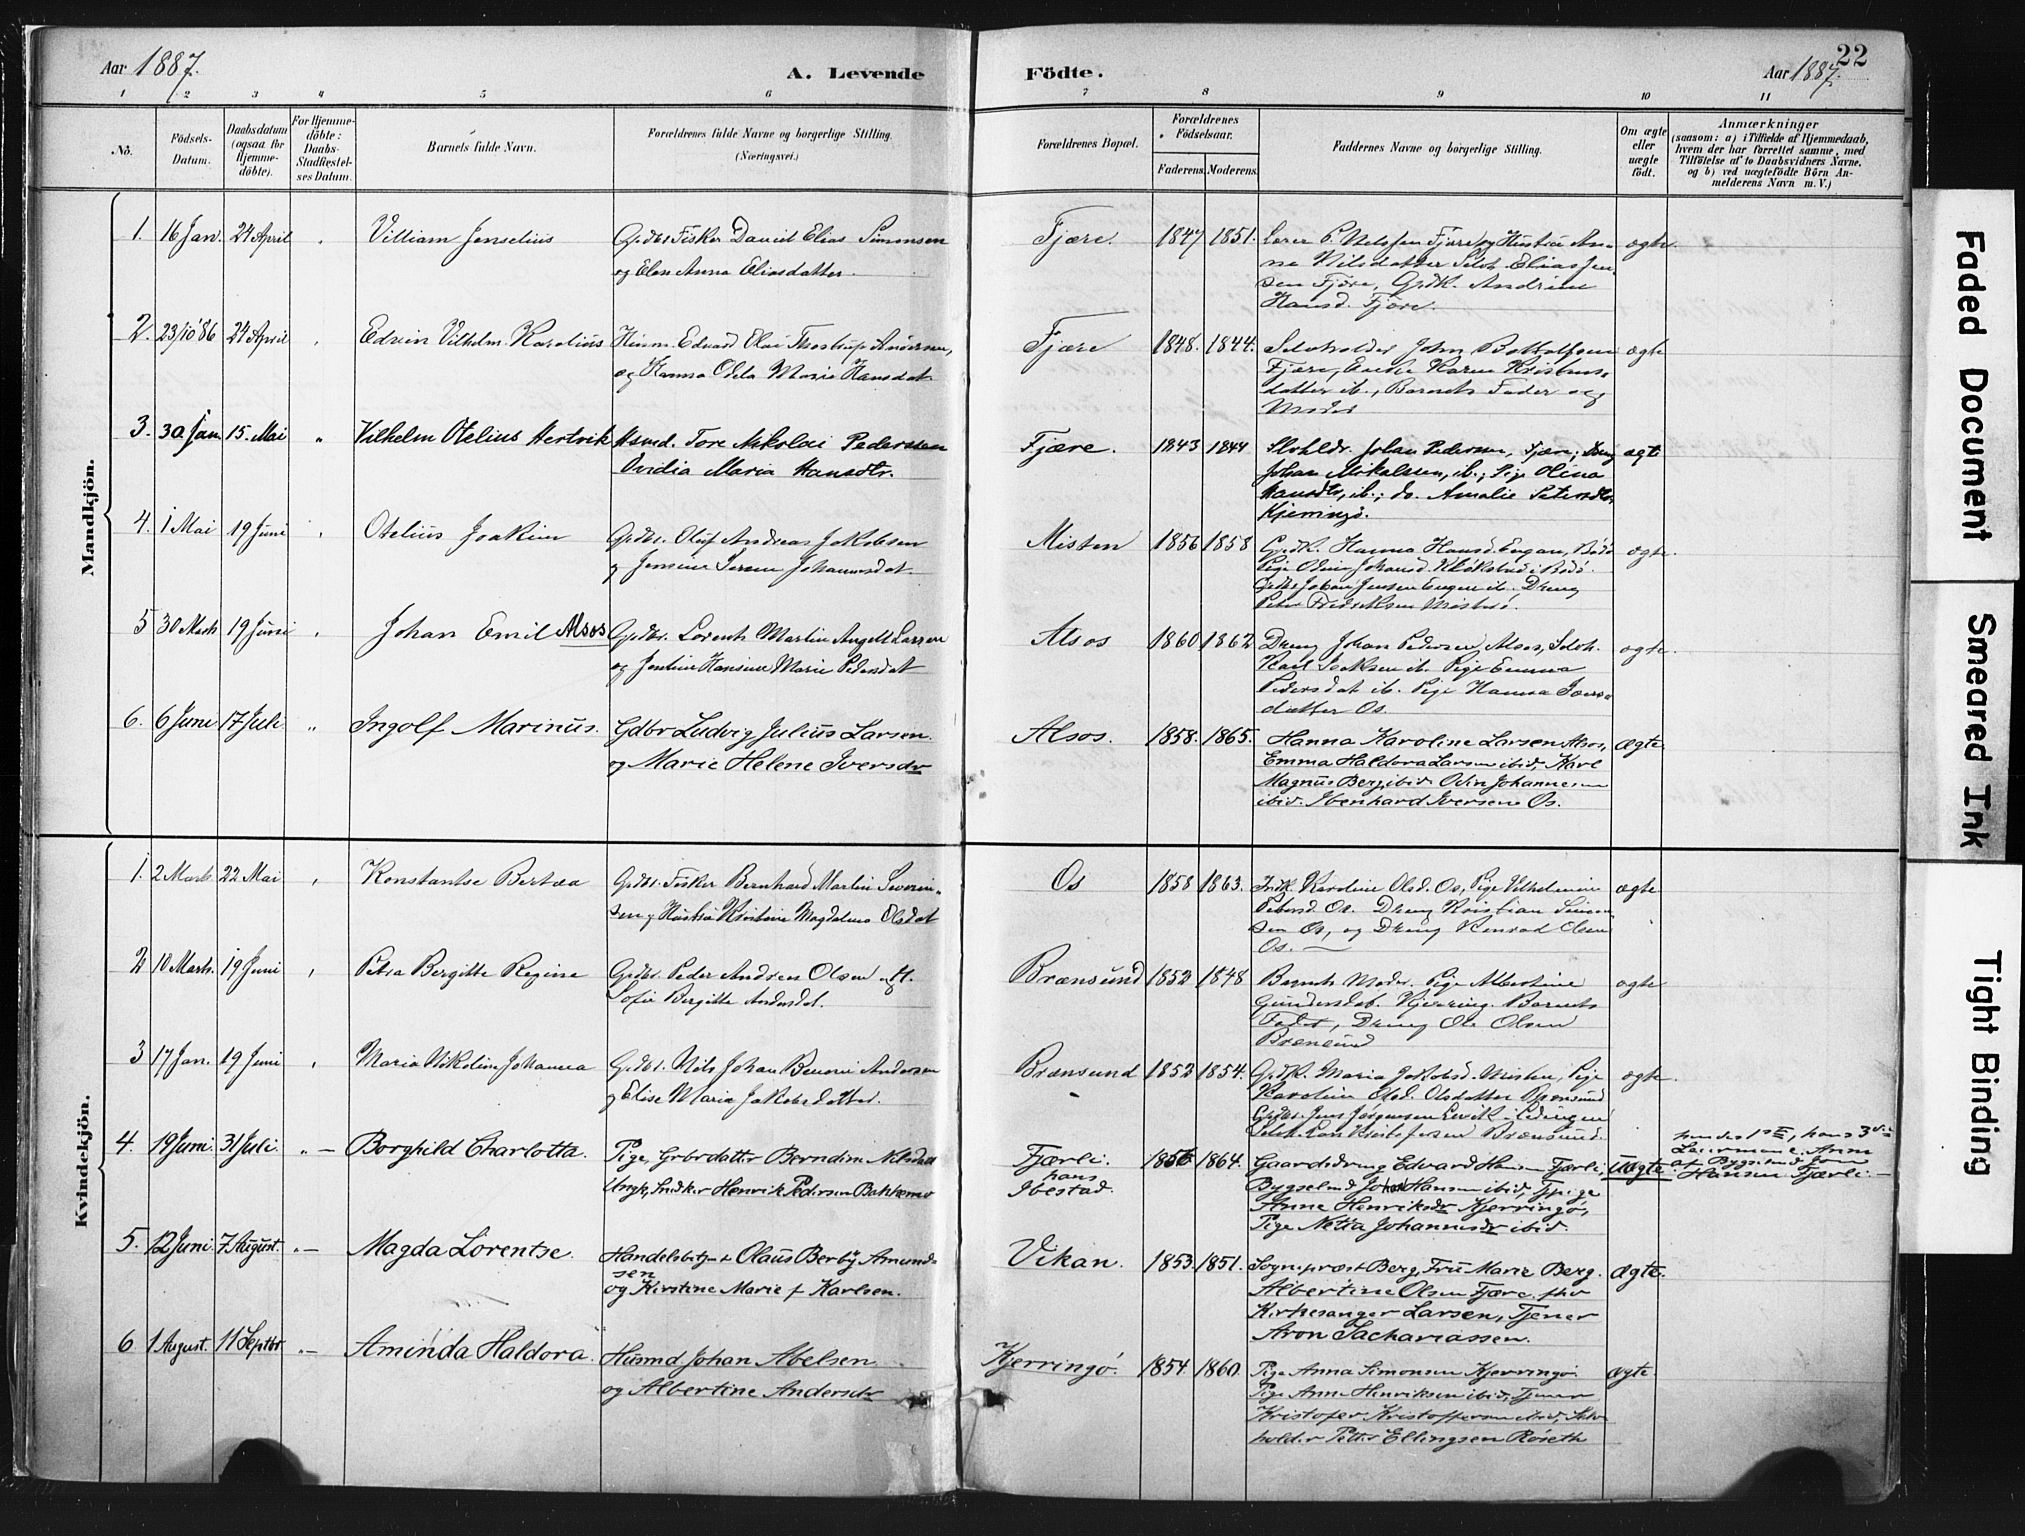 Aar 1887. A. Levende Födte. Aar 1887. 22
1 2 3 4 5 6 7 8 9 10 11
No. Födsels-Datum. Daabsdatum (ogsaa for Hjemmedöbte). For Hjemmedöbte: Daabs-Stadfæstelses Datum. Barnets fulde Navn. Forældrenes fulde Navne og borgerlige Stilling. (Næringsvei.) Forældrenes Bopæl. Forældrenes Födselsaar. Faderens. Moderens. Faddernes Navne og borgerlige Stilling. Om ægte eller uægte födt. Anmærkninger
(saasom: a) i Tilfælde af Hjemmedaab,
hvem der har forrettet samme, med
Tilföielse af to Daabsvidners Navne,
og b) ved uægtefödte Börn Anmelderens Navn m. V.)
Mandkjön.
1. 16 Jan. 24 April Villiam Jenselius Grdbr. Fisker Daniel Elias Simonsen Fjære. 1847 1851. Fjære og Hustru An-
og Elen Anna Eliasdatter. ne Nilsdatter Selvh. Elias Jen-
sen Fjære, Grdk. Andrine
Hansd. Fjære.
2. 23/10 '86 24 April Edvin Vilhelm Karolius Husm. Edvard Olai Andersen, Fjære 1848. 1844. Selvholder John Fjære ægte
og Hanna Odela Marie Hansdat. Fjære, Karen Kristens-
datter ib., Barnets Fader og
Moder
3. 30 Jan. 15. Mai " Vilhelm Otelius Hertvik Husmd. Tore Nikolai Pederssen Fjære. 1843 1844 Slvhldr. Johan Pedersen, Fjære; Dreng ægte
Ovidia Maria Hansdtr. Johan Nikolaisen, ib.; Pige Olina
Hansdtr, ib.; do. Amalie Petersdtr,
Kjerringø.
4. 1 Mai 19 Juni Otelius Joakim Grdbr. Oluf Andreas Jakobsen Misten 1856 1858 Grdk. Hanna Hansd. Engan, Bodø ægte
og Jensine Johannesdat. Pige Johansd. i Bodø.
Grdbr. Johan Jensen Engen ib. Dreng
Peter Fredriksen
5 30 Marts 19 Juni Johan Emil Alsos Grdbr. Lorents Martin Angell Larsen Alsos 1860 1862 Dreng Johan Pedersen Alsos, Selvh. ægte.
og Hansine Marie Pedersdat Karl Isaksen ib. Pige Emma
Pedersdat ib. Pige Hanna Ivers-
datter Os.
6. 6 Juni 17 Juli " Ingolf Marinus. Gdbr Ludvig Julius Larsen. Alsos. 1858. 1865. Hanna Karoline Larsen Alsos, ægte.
og Marie Helene Iversdr Emma Haldora Larsen ibid, Karl
Magnus Berg, ibid. Odin Johannesen
ibid. Ibenhard Iversen Os.
Kvindekjön.
1. 2 Marts 22 Mai Konstantse Bertea Grdbr. Fisker Bernhard Martin Severin- Os 1858 1863. Karoline Olsd. Os, Pige Vilhelmine ægte
sen og Hustru Kristine Magdalena Olsdat Petersd Os. Dreng Kristian
sen Os, og Dreng Konrad Olsen
Os.
2 10 Marts. 19 Juni Petra Bergitte Regine Grdbr. Peder Andreas Olsen og H. Brænsund 1852 1848 Barnets Moder. Pige Albertine ægte
Sofie Bergitte Andersdat. Gundersdat. Kjerring. Barnets
Fader, Dreng Ole Olsen
Brænsund
3 17 Jan. 19 Juni Maria Nikoline Johanna Grdbr. Nils Johan Andersen Brænsund 1852 1854. Grdk. Maria Jakobsd. Misten, Pige ægte.
og Elise Maria Jakobsdatter. Karoline Olsdatter Brænsund
Grdbr. Jens Jörgensen
Brænsund.
4. 19 Juni 31 Juli. " — Borghild Charlotta. Pige, Grbrdatter Berndine Nilsdatt Fjærli. 1856 1864. Gaardsdreng Edvard Fjærli, Uægte hendes 1ste, hans 3die
Ungk, Snedker Henrik Pedersen Bakkemo hans Ibestad. Bygselmd Johan Hansen ibid, Pige Leiermaal. Anm.
Anne Henriksdr Kjerringø, af Bygselmd Johan
Pige Netta Johannesdr ibid. Hansen Fjærli. —
5. 12 Juni 7 August. " — Magda Lorentse. Handelsbetj—t Olaus Berby Amund- Vikan. 1853. 1851. Sogneprest Berg, Fru Marie Berg. ægte.
sen Albertine Olsen Fjære,
og Kirstine Marie f Karlsen. Kirkesanger Larsen, Tjener
Aron Sachariassen.
6 1 August. 11 Septbr " — Aminda Haldora. Husmd Johan Abelsen Kjerringø. 1854. 1860. Pige Anna Simonsen Kjerringø. ægte.
og Albertine Andersdr Pige Anne Henriksen ibid, Tjener
Kristofer Kristoffersen ibid, Selv-
holder Petter Ellingsen Røseth
Faded Document
Smeared Ink
Tight Binding